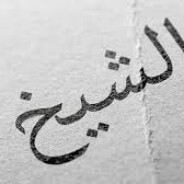 الشيخ